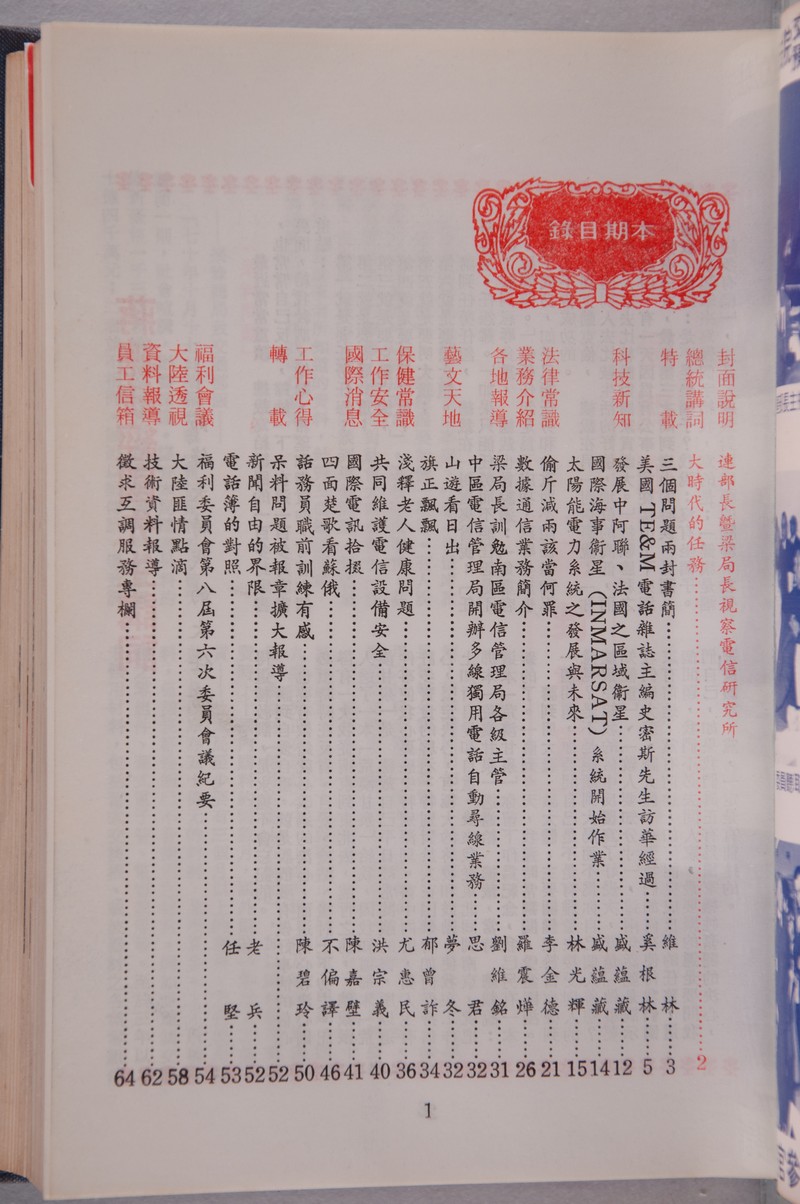 錄目期本
封面說明 連部長暨梁局長視察電信研究所
總統講詞 大時代的任務 2
特載 三個問題兩封書簡 維林 3
美國TE&M電話雜誌主編史密斯先生訪華經過 奚根林 5
科技新知 發展中阿聯、法國之區域衛星 盛蘊藏 12
國際海事衛星(INMARSAT)系統開始作業 盛蘊藏 14
太陽能電力系統之發展與未來 林光輝 15
法律常識 偷斤減兩該當何罪 李金德 21
業務介紹 數據通信業務簡介 羅震燁 26
各地報導 梁局長訓勉南區電信管理局各級主管 劉維銘 31
中區電信管理局開辦多線獨用電話自動尋線業務 思君 32
藝文天地 山遊看日出 夢冬 32
旗正飄飄 郁曾詐 34
保健常識 淺釋老人健康問題 尤惠民 36
工作安全 共同維護電信設備安全 洪宗義 40
國際消息 國際電訊拾掇 陳嘉壁 41
四面楚歌看蘇俄 不偏譯 46
工作心得 話務員職前訓練有感 陳碧玲 50
轉載 呆料問題被報章擴大報導 52
新聞自由的界限 老兵 52
電話簿的對照 任堅 53
福利會議 福利委員會第八屆第六次委員會議紀要 54
大陸透視 大陸匪情點滴 58
資料報導 技術資料報導 62
員工信箱 徵求互調服務專欄 64
1